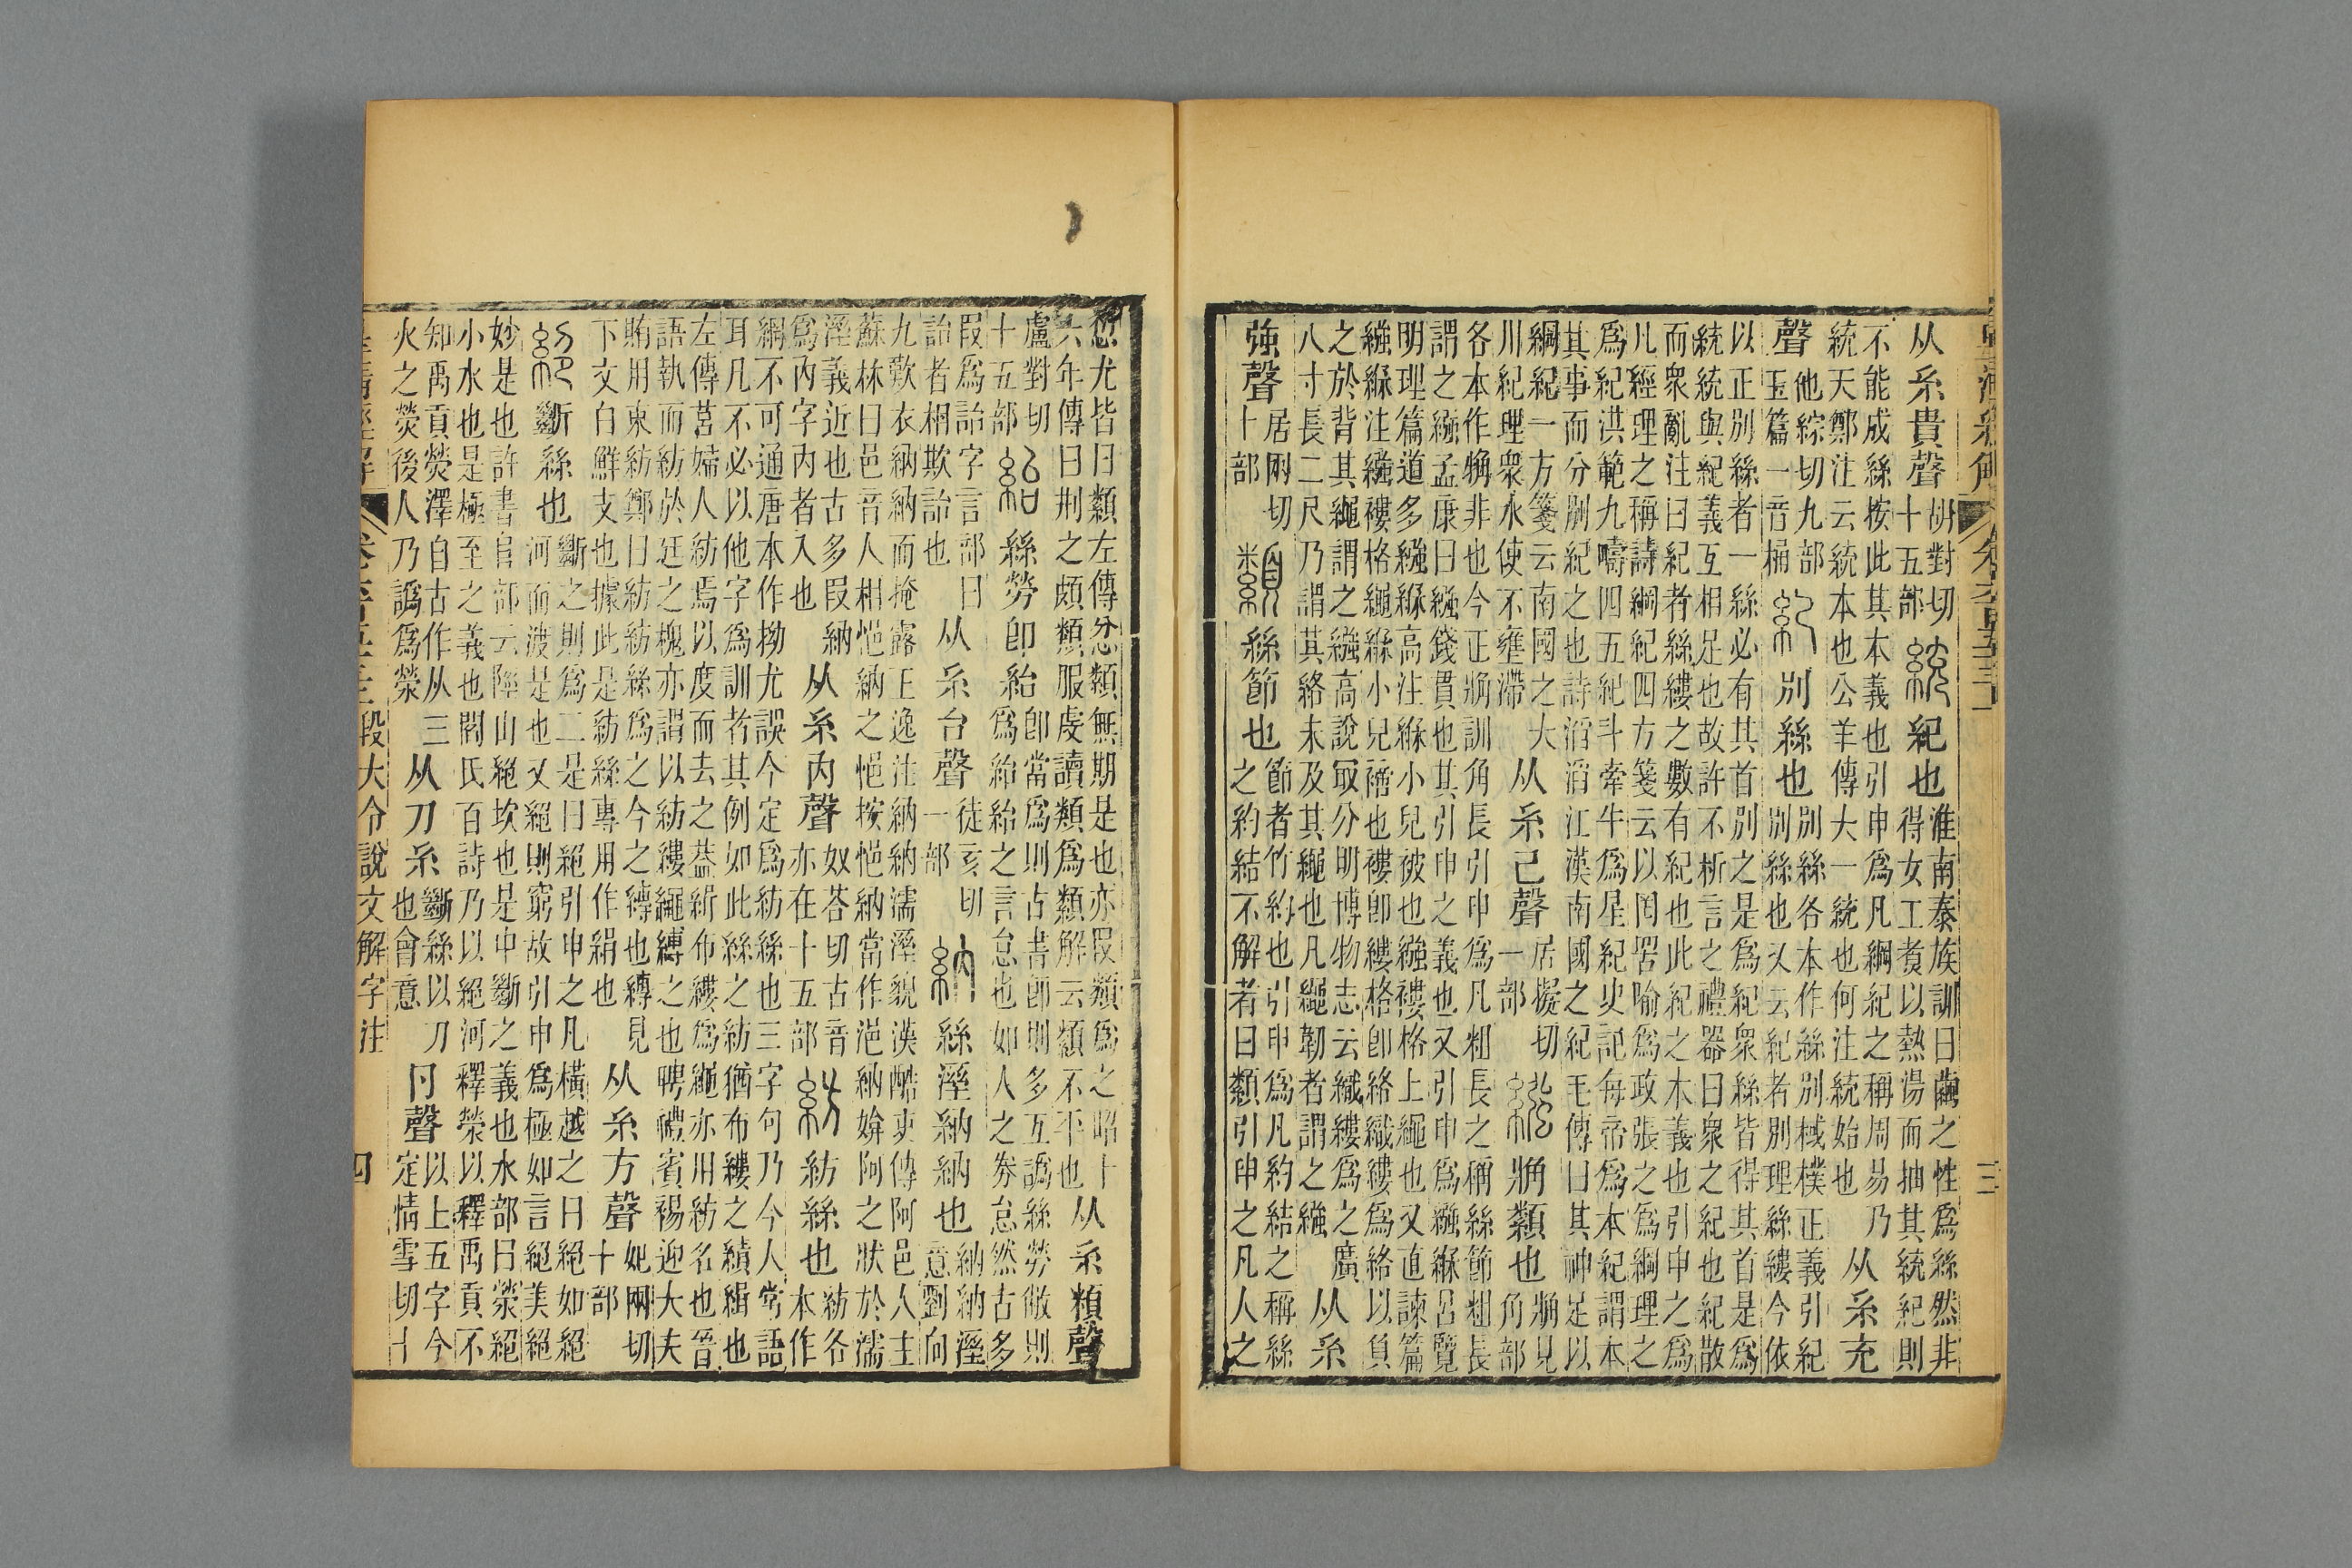 皇清經解 卷六百五十三 三
从糸貴聲胡對切十五部統紀也淮南泰族訓曰繭之性爲絲然非得女工煑以熱湯而抽其統紀則
不能成絲按此其本義也引申爲凡綱紀之稱周易乃統天鄭注云統本也公羊傳大一統也何注統始也从糸充
聲他綜切九部玉篇一音桶紀別絲也別絲各本作絲別棫樸正義引紀別絲也又云紀者別理絲縷今依
以正別絲者一絲必有其首別之是爲紀衆絲皆得其首是爲統統與紀義互相足也故許不析言之禮器曰衆之紀也紀散
而衆亂注曰紀者絲縷之數有紀也此紀之本義也引申之爲凡經理之稱詩綱紀四方箋云以罔罟喻爲政張之爲綱理之
爲紀洪範九疇四五紀斗牽牛爲星紀史記每帝爲本紀謂本其事而分別紀之也詩滔滔江漢南國之紀毛傳曰其神足以
綱紀一方箋云南國之大川紀理衆水使不壅滯从糸己聲居擬切一部繦觕纇也觕見角部
各本作觕非也今正觕訓角長引申爲凡粗長之稱絲節粗長謂之繦孟康曰繦錢貫也其引申之義也又引申爲繦緥呂覽
明理篇道多繦緥高注緥小兒被也繦褸格上繩也又直諫篇繦緥注繦褸格繩緥小兒䙀也褸卽縷格卽絡織縷爲絡以負
之於背其繩謂之繦高說㝡分明博物志云織縷爲之廣八寸長二尺乃謂其絡未及其繩也凡繩韌者謂之繦从糸
強聲居兩切十部纇絲節也節者竹約也引申爲凡約結之稱絲之約結不解者曰纇引申之凡人之
忿尤皆曰纇左傳忿纇無期是也亦叚類爲之昭十六年傳曰荆之頗類服虔讀類爲纇解云纇不平也从糸頪聲
盧對切十五部紿絲勞卽紿卽當爲則古書卽則多互譌絲勞敝則爲紿紿之言怠也如人之券怠然古多
叚爲詒字言部曰詒者相欺詒也从糸台聲徒亥切一部納絲溼納納也納納溼意劉向
九歎衣納納而掩露王逸注納納濡溼皃漢酷吏傳阿邑人主蘇林曰邑音人相悒納之悒按悒納當作浥納媕阿之狀於濡
溼義近也古多叚納爲內字內者入也从糸內聲奴荅切古音亦在十五部紡紡絲也紡各本作
綱不可通唐本作拗尤誤今定爲紡絲也三字句乃今人常語耳凡不必以他字爲訓者其例如此絲之紡猶布縷之績緝也
左傳莒婦人紡焉以度而去之葢絣布縷爲繩亦用紡名也晉語執而紡於廷之槐亦謂以紡縷繩縛之也聘禮賓裼迎大夫
賄用束紡鄭曰紡紡絲爲之今之縳也縳見下文白鮮支也據此是紡絲專用作絹也从糸方聲妃兩切十部
絕斷絲也斷之則爲二是曰絕引申之凡橫越之曰絕如絕河而渡是也又絕則窮故引申爲極如言絕美絕
妙是也許書𨸏部云陘山絕坎也是中斷之義也水部曰滎絕小水也是極至之義也閻氏百詩乃以絕河釋滎以釋禹貢不
知禹貢熒澤自古作从三火之熒後人乃譌爲滎从刀糸斷絲以刀也會意卪聲以上五字今定情雪切十
皇清經解 卷六百五十三 段大令說文解字注 四